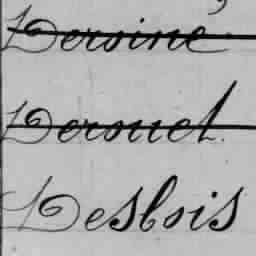 Deroiné
Derouet
Desbois